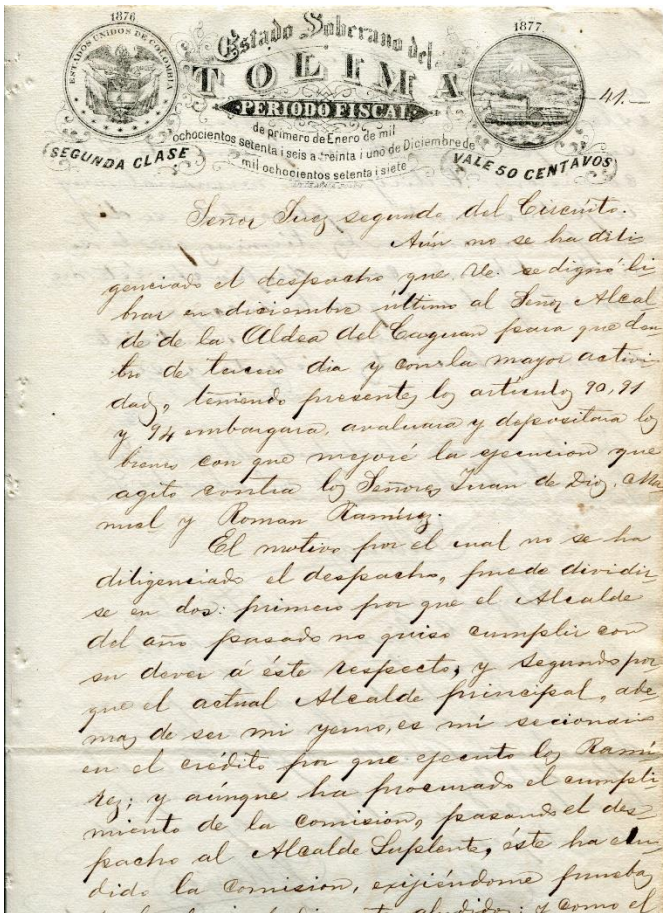 1876
1877.
ESTADOS UNIDOS DE COLOMBIA
Estado Soberano del
TOLIMA
PERIODO FISCAL
de primero de Enero de mil
ochocientos setenta i seis a treinta i uno de Diciembre de
mil ochocientos setenta i siete
SEGUNDA CLASE
VALE 50 CENTAVOS
41.—
Señor Juez segundo del Circuito.
Aún no se ha dili
genciado el despacho, que Ue. se dignó li
brar en diciembre último al Señor Alcal
de de la Aldea del Caguan para que den
tro de tercero dia y con la mayor activi
dad, teniendo presentes los artículos 90, 91
y 94 embargara, avaluara y depositara los
bienes con que mejoré la ejecucion que
agito contra los Señores Juan de Dios, Ma
nuel y Roman Ramírez.
El motivo por el cual no se ha
diligenciado el despacho, puede dividir
se en dos: primero por que el Alcalde
del año pasado no quiso cumplir con
su dever á éste respecto, y segundo por
que el actual Alcalde principal, ade
mas de ser mi yerno, es mi secionario
en el crédito por que ejecuto los Ramí
rez; y aúnque ha procurado el cumpli
miento de la comision, pasando el des
pacho al Alcalde Suplente, éste ha elu
dido la comision, exijiéndome pruebas
aludido; y como el